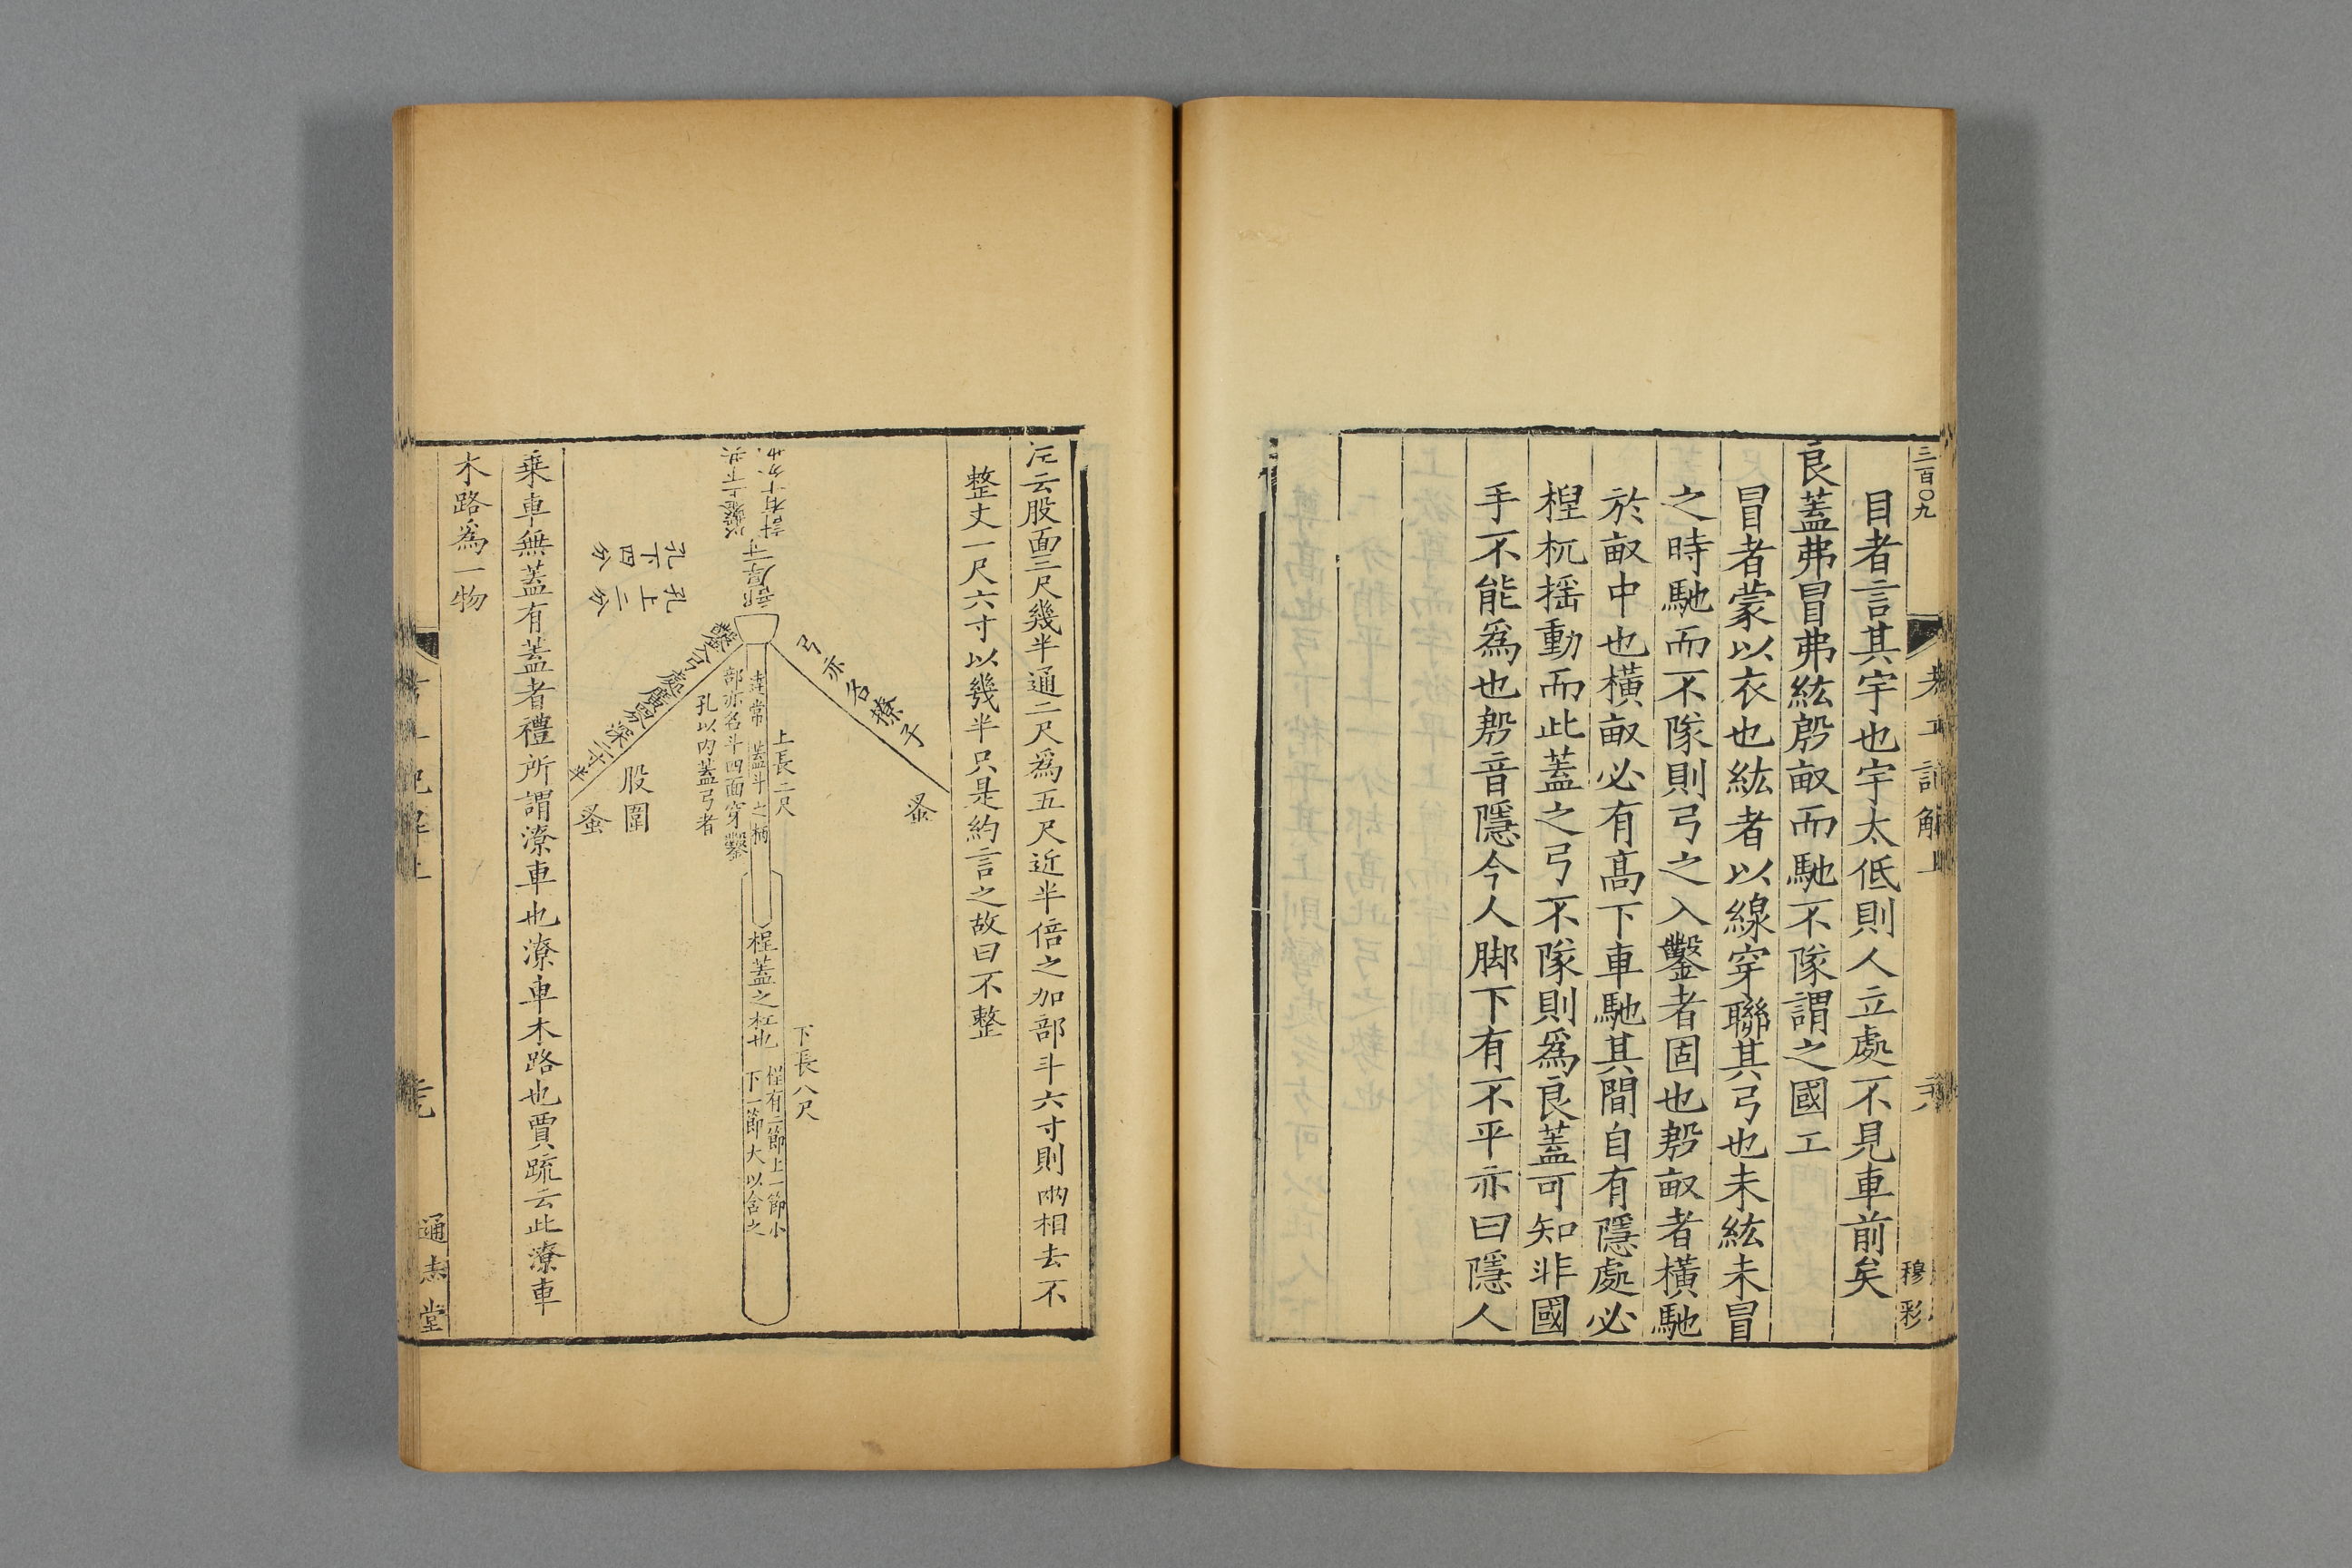 三百〇九
考工記解上
穆彩
目者言其宇也宇太低則人立處不見車前矣
良蓋弗冒弗紘殷畝而馳不隊謂之國工
冒者蒙以衣也紘者以線穿聯其弓也未紘未冒
之時馳而不隊則弓之入鑿者固也殷畝者橫馳
於畝中也橫畝必有髙下車馳其間自有隱處必
桯杌揺動而此蓋之弓不隊則爲良蓋可知非國
手不能爲也殷音隱今人脚下有不平亦曰隱人
注云股面三尺幾半通二尺爲五尺近半倍之加部斗六寸則兩相去不
整丈一尺六寸以幾半只是約言之故曰不整
弓亦名橑子
蚤
部厚一寸
計有十分
以鑿上下共
孔上二分
孔下四分
鑿弓處廣
深二寸半
股圍
蚤
上長二尺
達常 蓋斗之柄
部亦名斗四面穿鑿
孔以内蓋弓者
桯蓋之杠也
下長八尺
桯有二節上一節小
下一節大以含之
乗車無蓋有蓋者禮所謂潦車也潦車木路也賈疏云此潦車
木路爲一物
通志堂